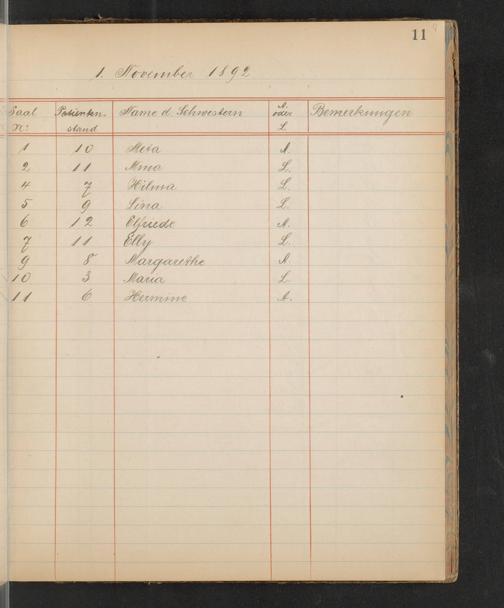 11
1. November 1892
Saal Nº Patienten-stand Name d. Schwestern A. oder L. Bemerkungen
1 10 Meta A.
2 11 Mina L.
4 7 Hilma L.
5 9 Lina L.
6 12 Elfriede A.
7 11 Elly L.
9 8 Margarethe A.
10 3 Maria L.
11 6 Hermine A.